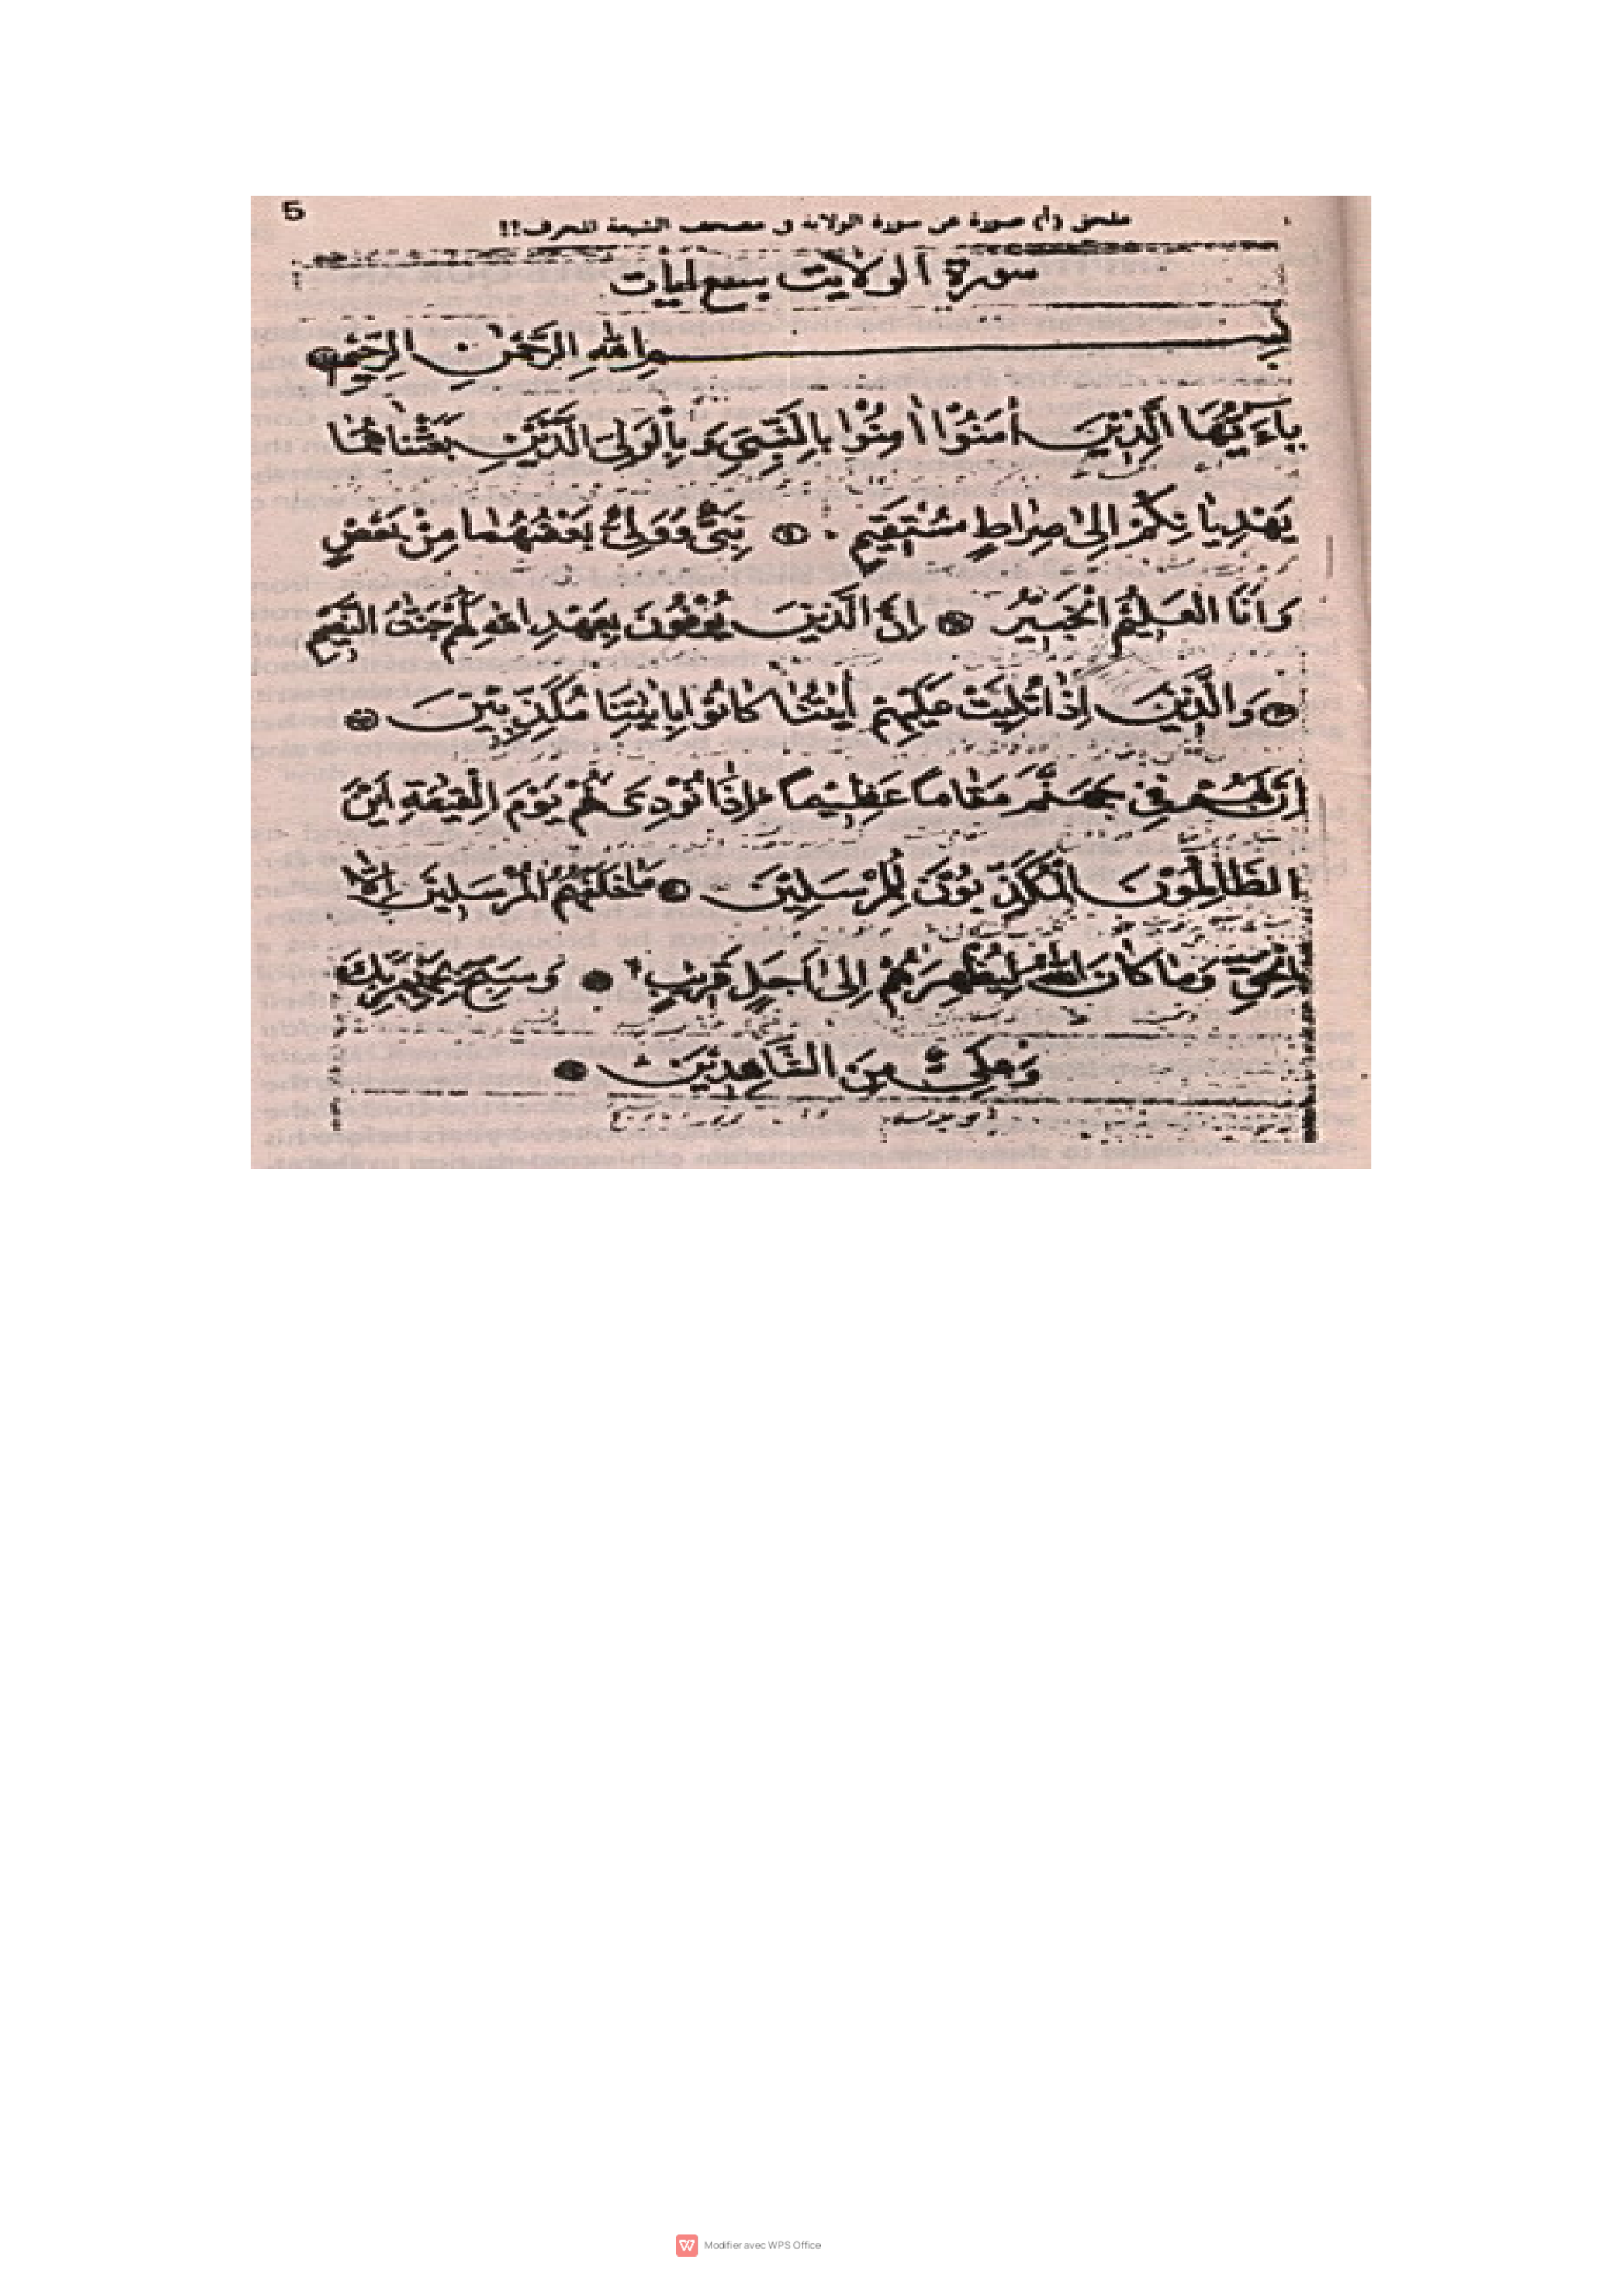 5
ملحق (أ) صورة عن سورة الولاية في مصحف الشيعة المحرف!!
سورة الولایت بسبع اٰیات
بِسْمِ اللّٰهِ الرَّحْمٰنِ الرَّحِيْمِ
يٰاۤءَيُّهَا الَّذِيْنَ اٰمَنُوْا اٰمِنُوْا بِالنَّبِيِّ وَ بِالْوَلِيِّ الَّذَيْنِ بَعَثْنَاهُمَا
يَهْدِيَانِكُمْ اِلىٰ صِرَاطٍ مُسْتَقِيْمٍ نَبِيٌّ وَوَلِيٌّ بَعْضُهُمَا مِنْ بَعْضٍ
وَاَنَا الْعَلِيْمُ الْخَبِيْرُ اِنَّ الَّذِيْنَ يُوْفُوْنَ بِعَهْدِ اللّٰهِ لَهُمْ جَنّٰتُ النَّعِيْمِ
وَالَّذِيْنَ اِذَا تُلِيَتْ عَلَيْهِمْ اٰيٰتُنَا كَانُوْا بِاٰيٰتِنَا مُكَذِّبِيْنَ
اِنَّ لَهُمْ فِيْ جَهَنَّمَ مَقَامًا عَظِيْمًا اِذَا نُوْدِىَ لَهُمْ يَوْمَ الْقِيٰمَةِ اَيْنَ
الظَّالِمُوْنَ الْمُكَذِّبُوْنَ لِلْمُرْسَلِيْنَ مَا خَلَفَهُمُ الْمُرْسَلِيْنَ اِلَّا
بِالْحَقِّ وَمَا كَانَ اللّٰهُ لِيُظْهِرَهُمْ اِلىٰ اَجَلٍ قَرِيْبٍ وَسَبِّحْ بِحَمْدِ رَبِّكَ
وَعَلِيٌّ مِنَ الشَّاهِدِيْنَ
Modifier avec WPS Office